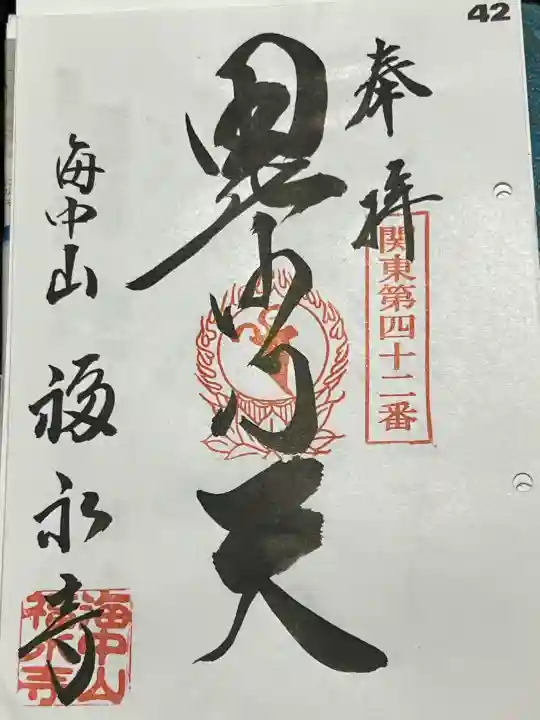 42
奉拝
関東第四十二番
毘沙門天
海中山 福永寺
海中山
福永寺